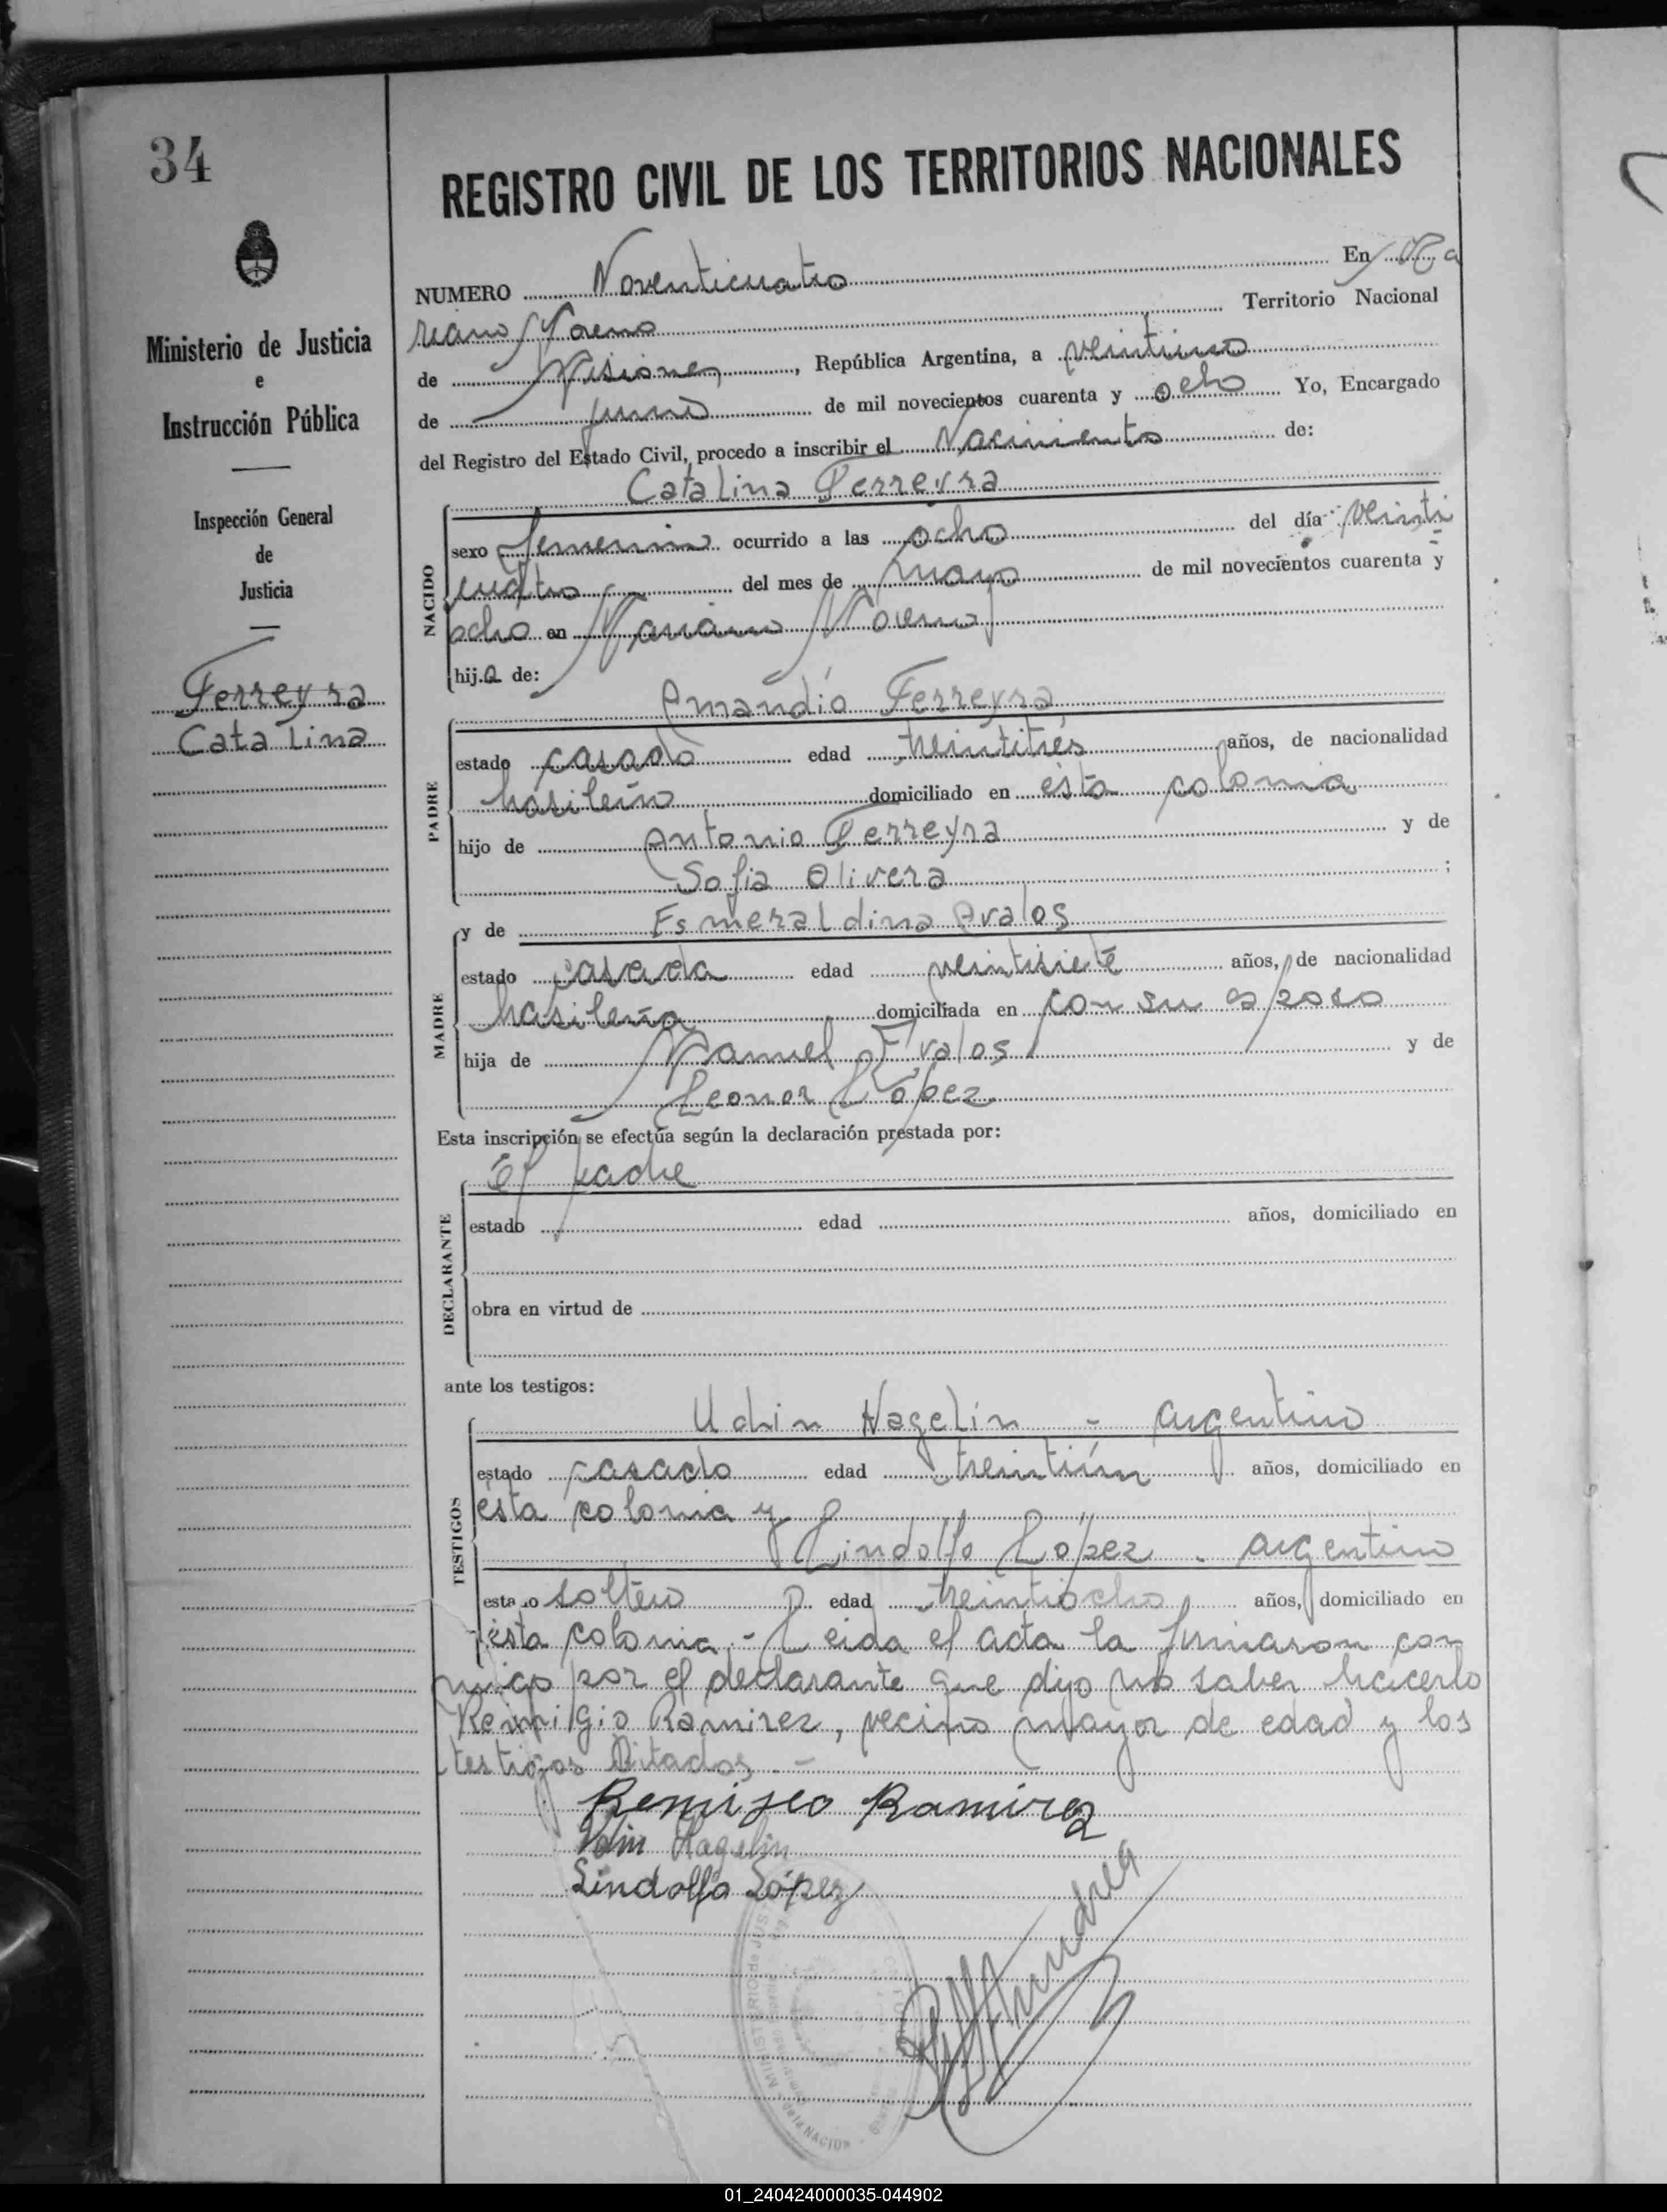 34
Ministerio de Justicia
e
Instrucción Pública
Inspección General
de
Justicia
Ferreyra
Catalina
REGISTRO CIVIL DE LOS TERRITORIOS NACIONALES
NUMERO Noventicuatro En Ma
riano Moreno Territorio Nacional
de Misiones, República Argentina, a veintiuno
de junio de mil novecientos cuarenta y ocho Yo, Encargado
del Registro del Estado Civil, procedo a inscribir el Nacimiento de:
NACIDO
Catalina Ferreyra
sexo femenino ocurrido a las ocho del día veinti
cuatro del mes de mayo de mil novecientos cuarenta y
ocho en Mariano Moreno
hija de:
PADRE
Amandio Ferreyra
estado casado edad treintitrés años, de nacionalidad
brasileño domiciliado en ésta colonia
hijo de Antonio Ferreyra y de
Sofia Olivera ;
MADRE
y de Esmeraldina Avalos
estado casada edad veintisiete años, de nacionalidad
brasileña domiciliada en con su esposo
hija de Manuel Avalos y de
Leonor López
Esta inscripción se efectúa según la declaración prestada por:
DECLARANTE
él padre
estado edad años, domiciliado en
obra en virtud de
ante los testigos:
TESTIGOS
Nagelin - argentino
estado casado edad treintiún años, domiciliado en
esta colonia y
Lindolfo López - argentino
estado soltero edad treintiocho años, domiciliado en
ésta colonia.- Leida el acta la firmaron con
migo por el declarante que dijo no saber hacerlo
Remigio Ramirez, vecino mayor de edad y los
testigos citados.-
Remijeo Ramirez
Hagelin
Lindolfo López
MINISTERIO de JUSTICIA
de la NACION
01_240424000035-044902